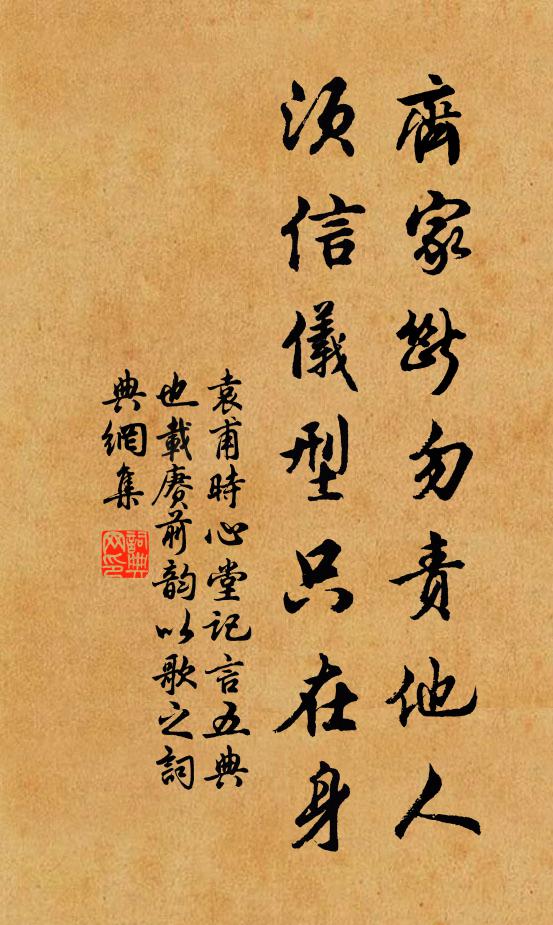 齊家斷勿責他人
須信儀型只在身
袁甫時心堂記言五典
也載賡前韵以歌之詞
典網集
詞典网印